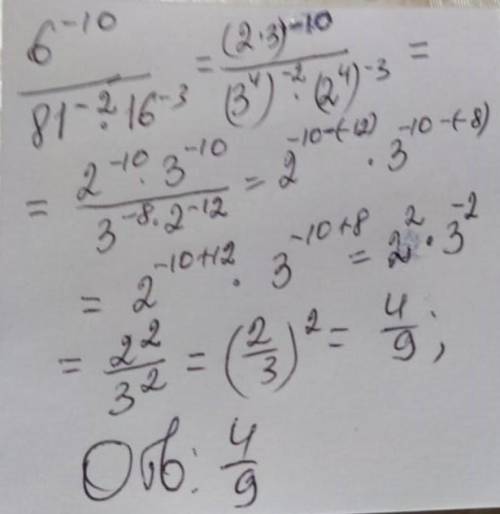 6⁻¹⁰ / 81⁻²·16⁻³ = (2·3)⁻¹⁰ / (3⁴)⁻²·(2⁴)⁻³ =
= 2⁻¹⁰·3⁻¹⁰ / 3⁻⁸·2⁻¹² = 2⁻¹⁰⁻⁽⁻¹²⁾ · 3⁻¹⁰⁻⁽⁻⁸⁾
= 2⁻¹⁰⁺¹² · 3⁻¹⁰⁺⁸ = 2²·3⁻²
= 2²/3² = (2/3)² = 4/9;
Отв: 4/9